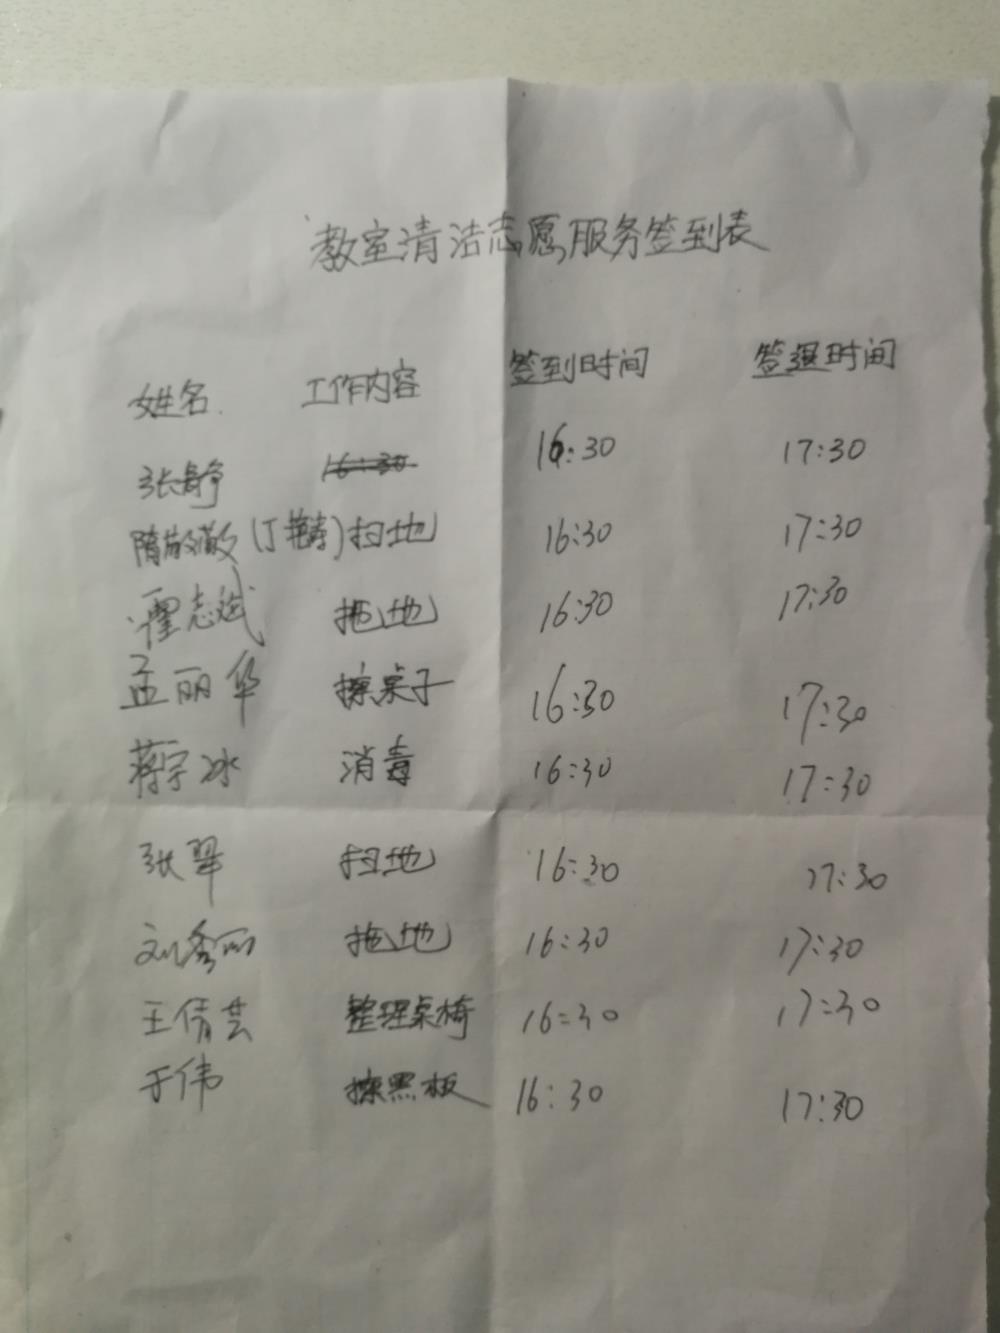 教室清洁志愿服务签到表
姓名 工作内容 签到时间 签退时间
张静 16:30 16:30 17:30
隋 扫地 16:30 17:30
霍志斌 拖地 16:30 17:30
孟丽华 擦桌子 16:30 17:30
蒋宇冰 消毒 16:30 17:30
张翠 扫地 16:30 17:30
刘秀丽 拖地 16:30 17:30
王倩芸 整理桌椅 16:30 17:30
于伟 擦黑板 16:30 17:30